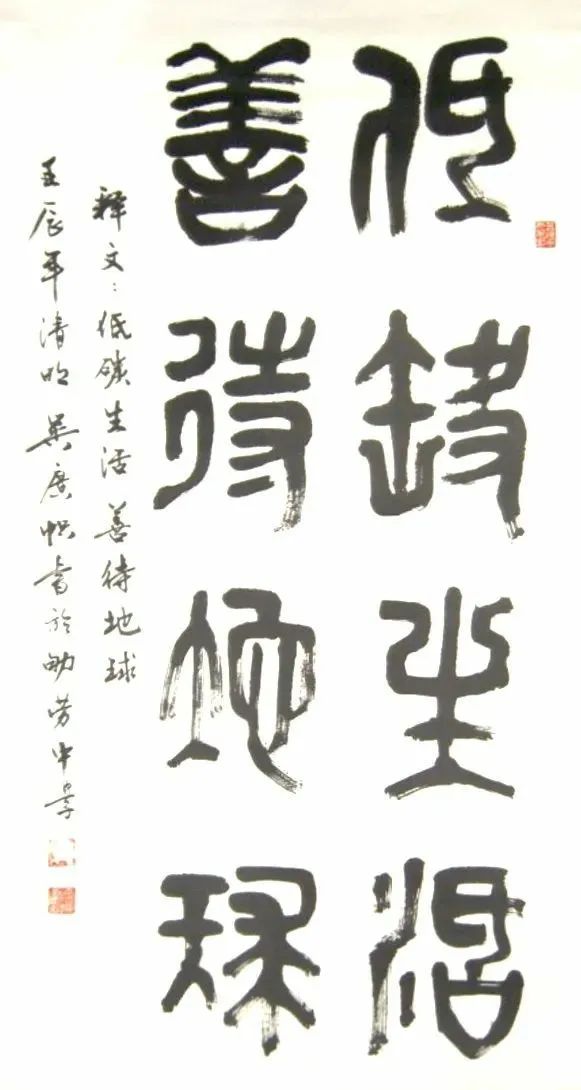 低碳生活
善待地球
释文：低碳生活 善待地球
壬辰年清明 吴广帜书於